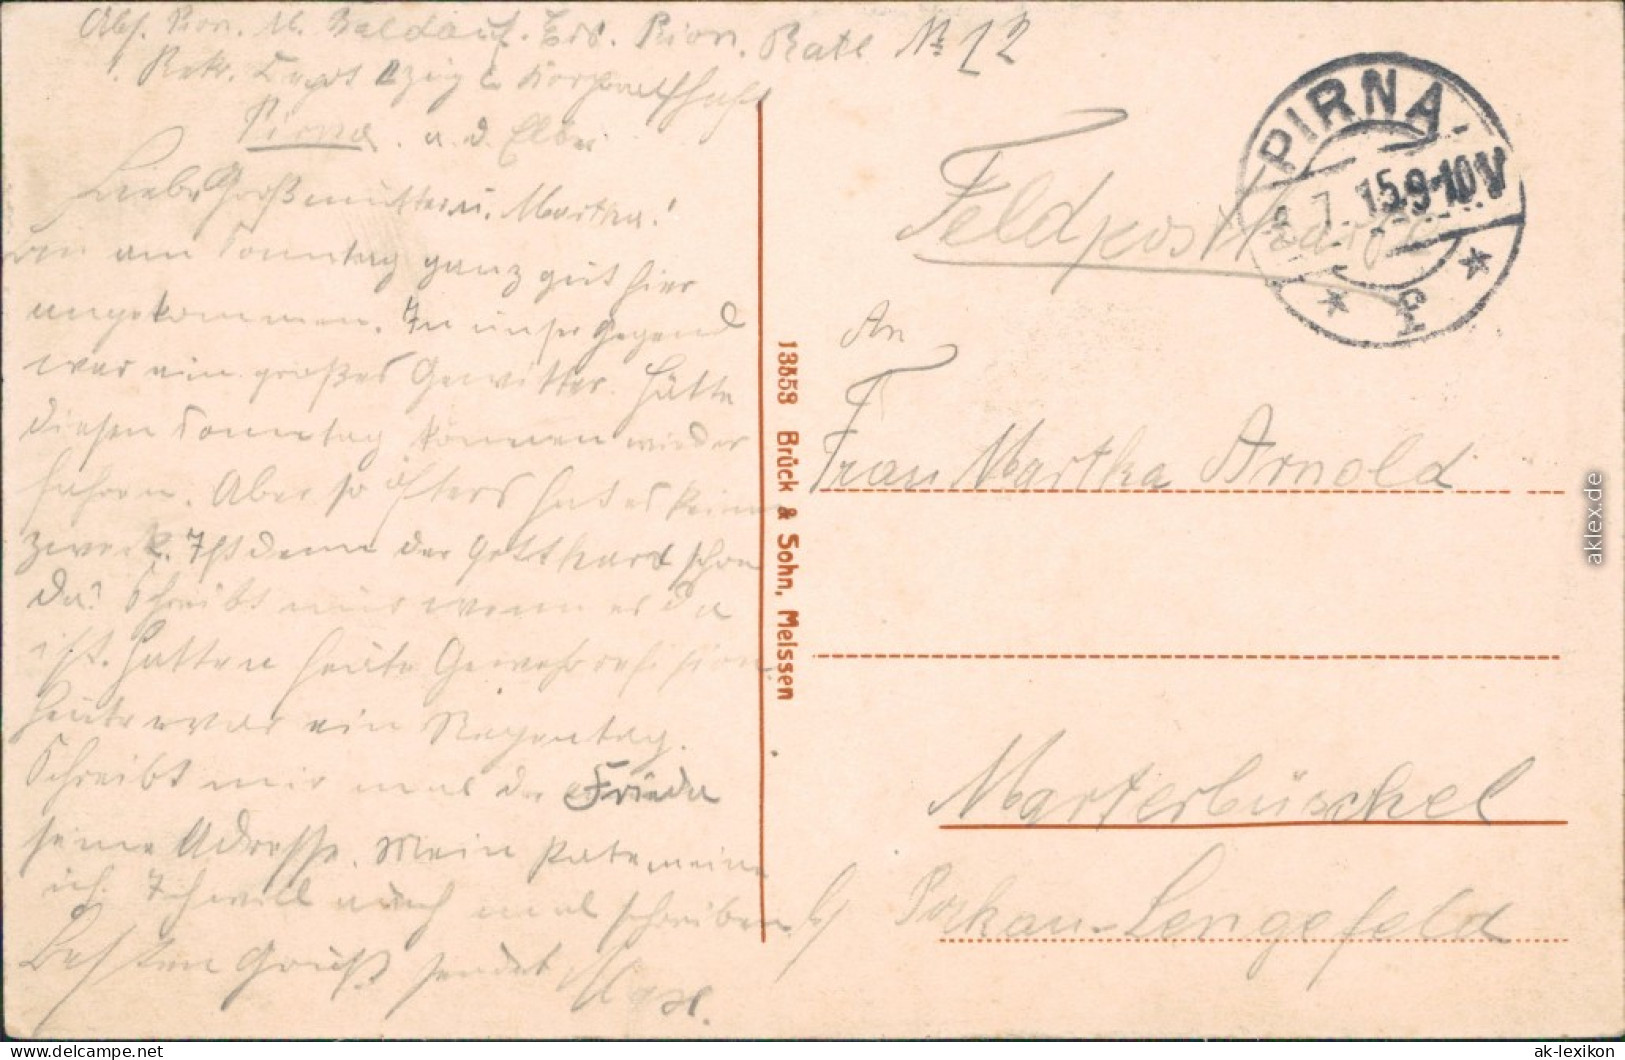 Abs. Pion. M. Baldauf. Ers. Pion. Batl № 12
1. Rekr. Depot II Zug 6 Korporalschaft
Pirna. a. d. Elbe
Liebe Großmutter u. Martha!
Bin am Sonntag ganz gut hier
angekommen. In unser Gegend
war ein großes Gewitter. Hätte
diesen Sonntag können wieder
fahren. Aber so öfters hat es keinen
Zweck. Ist denn der Gotthard schon
da? Schreibt mir wenn er da
ist. Hatten heute Gewehrrefision
heute war ein Regentag.
Schreibt mir mal der Frieda
seine Adresse. Mein Pate meine
ich. Ich will auch mal schreiben.
Besten Gruß sendet Max.
13859 Brück & Sohn, Meissen
Feldpostkarte
PIRNA
7. 15. 9-10 V
* c *
An
Frau Martha Arnold
Marterbüschel
b/ Pockau-Lengefeld
aklex.de
ak-lexikon.de
ak-lexikon